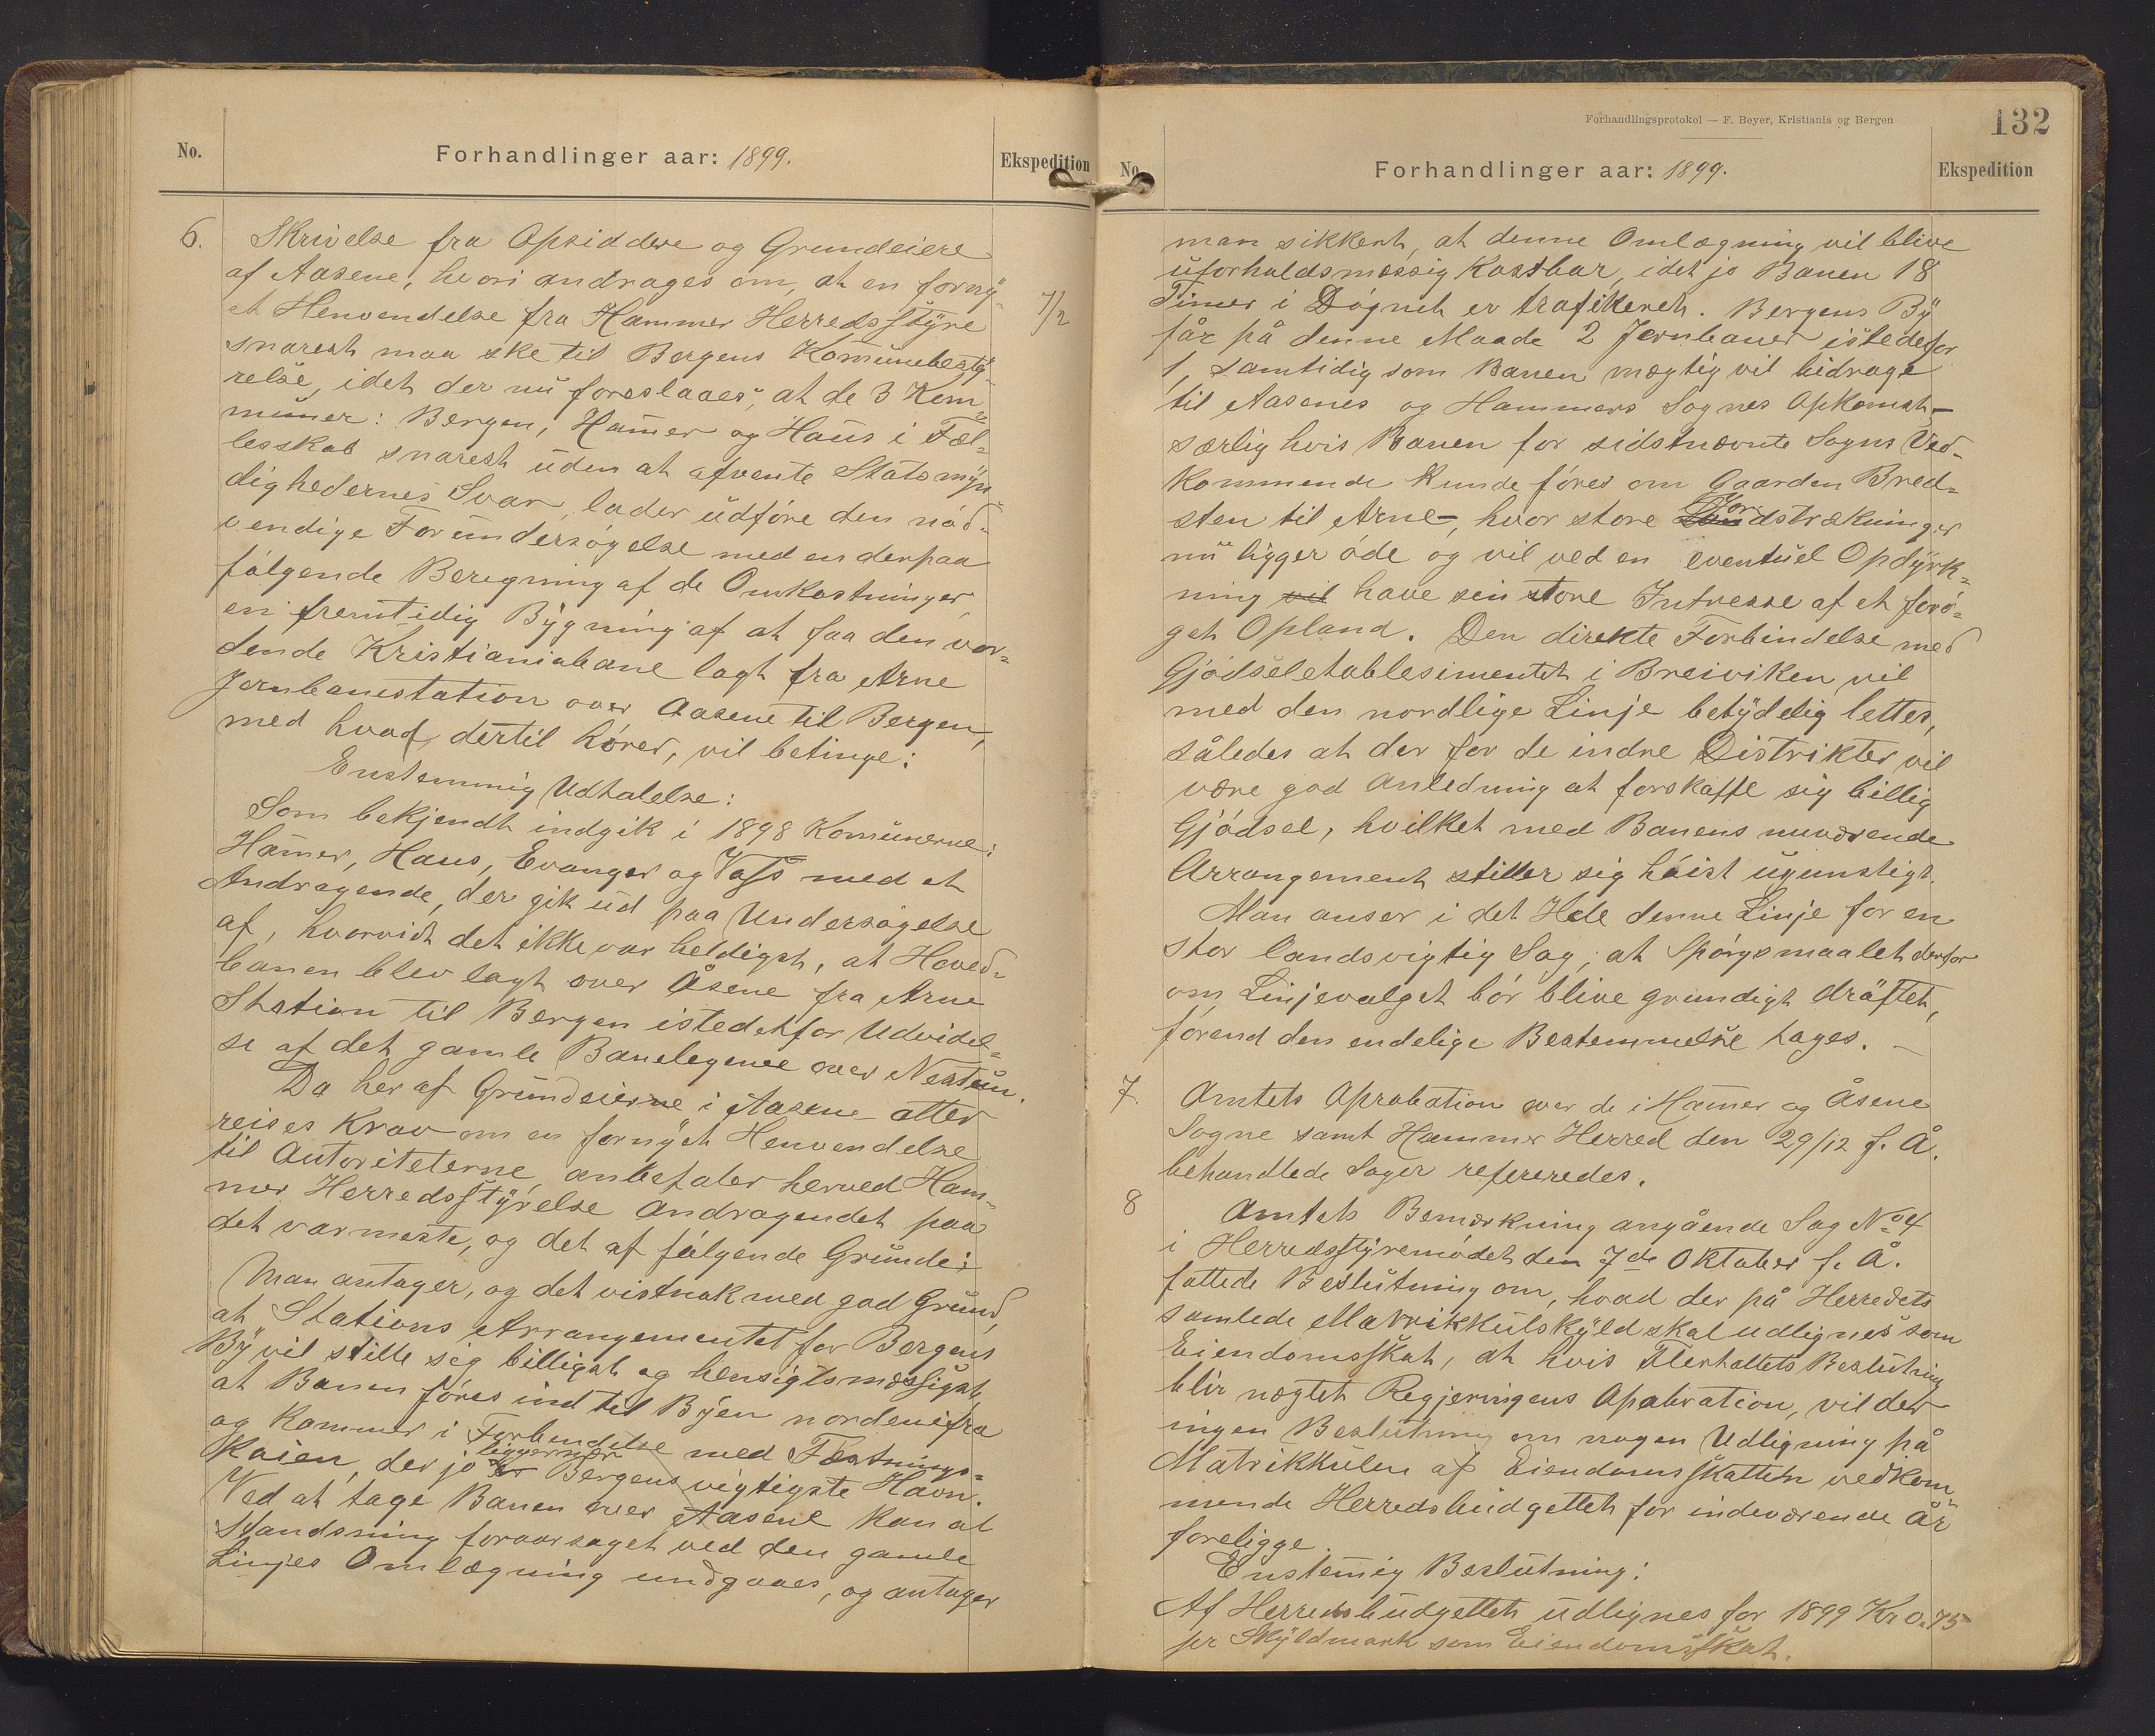 No.
Forhandlinger aar: 1899.
Ekspedition
6.
Skrivelse fra Opsiddere og Grundeiere
af Aasene, hvori andrages om, at en forny-
et Henvendelse fra Hammer Herredsstyre
7/2
snarest maa ske til Bergens Kommunebesty-
relse, idet der nu foreslaaes, at de 3 Kom-
muner: Bergen, Hamer og Haus i Fæl-
lesskab snarest uden at afvente Statsmyn
dighedernes Svar, lader udføre den nød-
vendige Forundersøgelse med en derpaa
følgende Beregning af de Omkostninger,
en fremtidig Bygning af at faa den vor-
dende Kristianiabane lagt fra Arne
Jernbanestation over Aasene til Bergen,
med hvad dertil hører, vil betinge:
Enstemmig Udtalelse:
Som bekjendt indgik i 1898 Komunerne:
Hamer, Haus, Evanger og Voss med et
Andragende, der gik ud paa Undersøgelse
af, hvorvidt det ikke var heldigst, at Hoved-
banen blev lagt over Åsene fra Arne
Station til Bergen istedetfor Udvidel-
se af det gamle Banelegeme over Nestun.
Da her af Grundeierne i Aasene atter
reises Krav om en fornyet Henvendelse
til Autoriteterne, anbefaler herved Ham-
mer Herredsstyrelse Andragendet paa
det varmeste, og det af følgende Grunde:
Man antager, og det vistnok med god Grund,
at Stations Arrangementet for Bergens
By vil stille sig billigst og hensigtsmæssigst
at Banen føres ind til Byen nordenifra
og kommer i Forbendelse med Fæstnings-
liggernær
Kaien, der jo er Bergens vigtigste Havn.
Ved at tage Banen over Aasene kan al
Standsning foraarsaget ved den gamle
Linjes Omlægning undgaaes, og antager
Forhandlingsprotokol — F. Beyer, Kristiania og Bergen
132
No.
Forhandlinger aar: 1899.
Ekspedition
man sikkert, at denne Omlægning vil blive
uforholdsmæssig kostbar, idet jo Banen 18
Timer i Døgnet er trafikeret. Bergens By
får på denne Maade 2 Jernbaner istedefor
1, samtidig som Banen mægtig vil bidrage
til Aasenes og Hammers Sognes Opkomst –
særlig hvis Banen for sidstnævnte Sogns Ved-
kommende kunde føres om Gaarden Bred-
sten til Arne –, hvor store Jordstrækninger
nu ligger øde og vil ved en eventuel Opdyrk-
ning vil have sin store Intresse af et forø-
get Opland. Den direkte Forbindelse med
Gjødseletablesimentet i Breiviken vil
med den nordlige Linje betydelig lettes,
således at der for de indre Distrikter vil
være god Anledning at forskaffe sig billig
Gjødsel, hvilket med Banens nuværende
Arrangement stiller sig høist ugunstigt.
Man anser i det Hele denne Linje for en
stor landsvigtig Sag, at Spørgsmaalet derfor
om Linjevalget bør blive grundigt drøftet,
førend den endelige Bestemmelse tages. –
7.
Amtets Aprobation over de i Hamer og Åsene
Sogne samt Hammer Herred den 29/12 f. Å.
behandlede Sager refereredes.
8
Amtets Bemærkning angående Sag No 4
i Herredsstyremødet den 7de Oktober f. Å.
fattede Beslutning om, hvad der på Herredets
samlede Matrikkulskyld skal udlignes som
Eiendomsskat, at hvis Flertallets Beslutning
blir nægtet Regjeringens Apabration, vil der
ingen Beslutning om nogen Udligning på
Matrikkulen af Eiendomsskatten vedkom-
mende Herredsbudgettet for indeværende År
foreligge.
Enstemig Beslutning:
Af Herredsbudgettet udlignes for 1899 Kr 0.75
pr Skyldmark som Eiendomsskat.